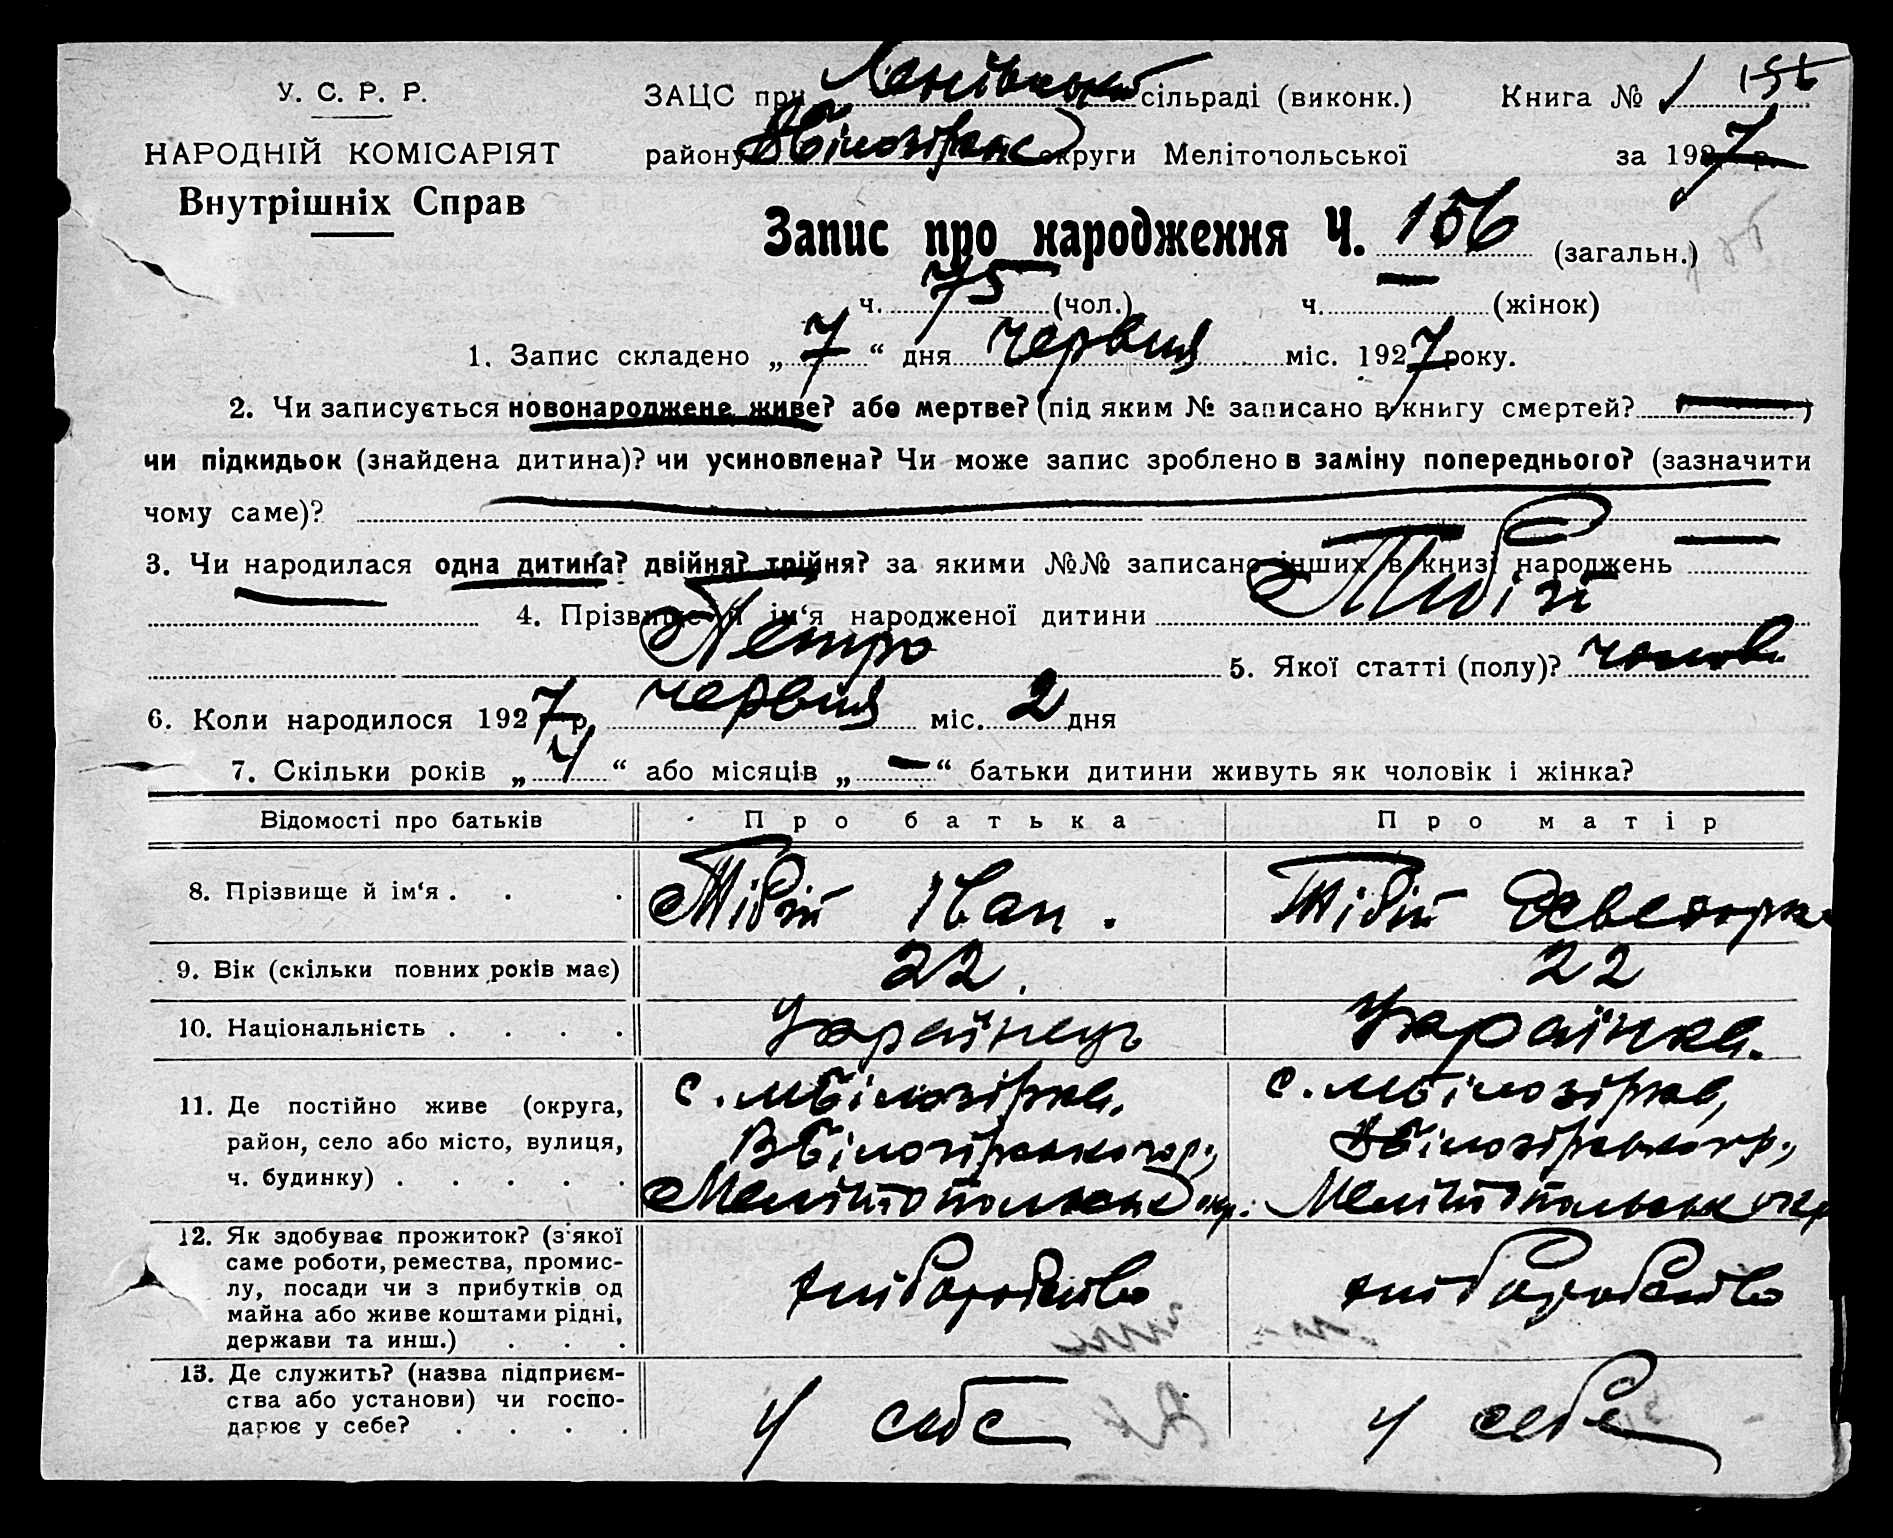 У. С. Р. Р.
НАРОДНІЙ КОМІСАРІЯТ
Внутрішніх Справ
ЗАЦС при Ленівській сільраді (виконк.) Книга № 1 156
району Вбілозірськ округи Мелітопольської за 1927 р.
Запис про народження Ч. 156 (загальн.)
ч. 75 (чол.) ч. (жінок)
1. Запис складено „ 7 “ дня червця міс. 1927 року.
2. Чи записується новонароджене живе? або мертве? (під яким № записано в книгу смертей? — )
чи підкидьок (знайдена дитина)? чи усиновлена? Чи може запис зроблено в заміну попереднього? (зазначити
чому саме)?
3. Чи народилася одна дитина? двійня? трійня? за якими №№ записано інших в книзі народжень —
4. Прізвище й ім‘я народженої дитини Тибій
Петро 5. Якої статті (полу)? чолов.
6. Коли народилося 1927 р. червця міс. 2 дня
7. Скільки років „ 4 “ або місяців „ — “ батьки дитини живуть як чоловік і жінка?
Відомості про батьків Про батька Про матір
8. Прізвище й ім‘я . . . Тібій Іван. Тібій
9. Вік (скільки повних років має) 22. 22
10. Національність . . . . Українець Українка.
11. Де постійно живе (округа, район, село або місто, вулиця, ч. будинку) . . . . .
с. мбілозірка, с. мбілозірка,
Вбілозірського р., Вбілозірського р.,
Мелітопольськ окр. Мелітопольськ окр
12. Як здобуває прожиток? (з‘якої саме роботи, ремества, промислу, посади чи з прибутків од майна або живе коштами рідні, держави та инш.) . . .
хліборобство хліборобство
13. Де служить? (назва підприємства або установи) чи господарює у себе? . . . .
у себе у себе